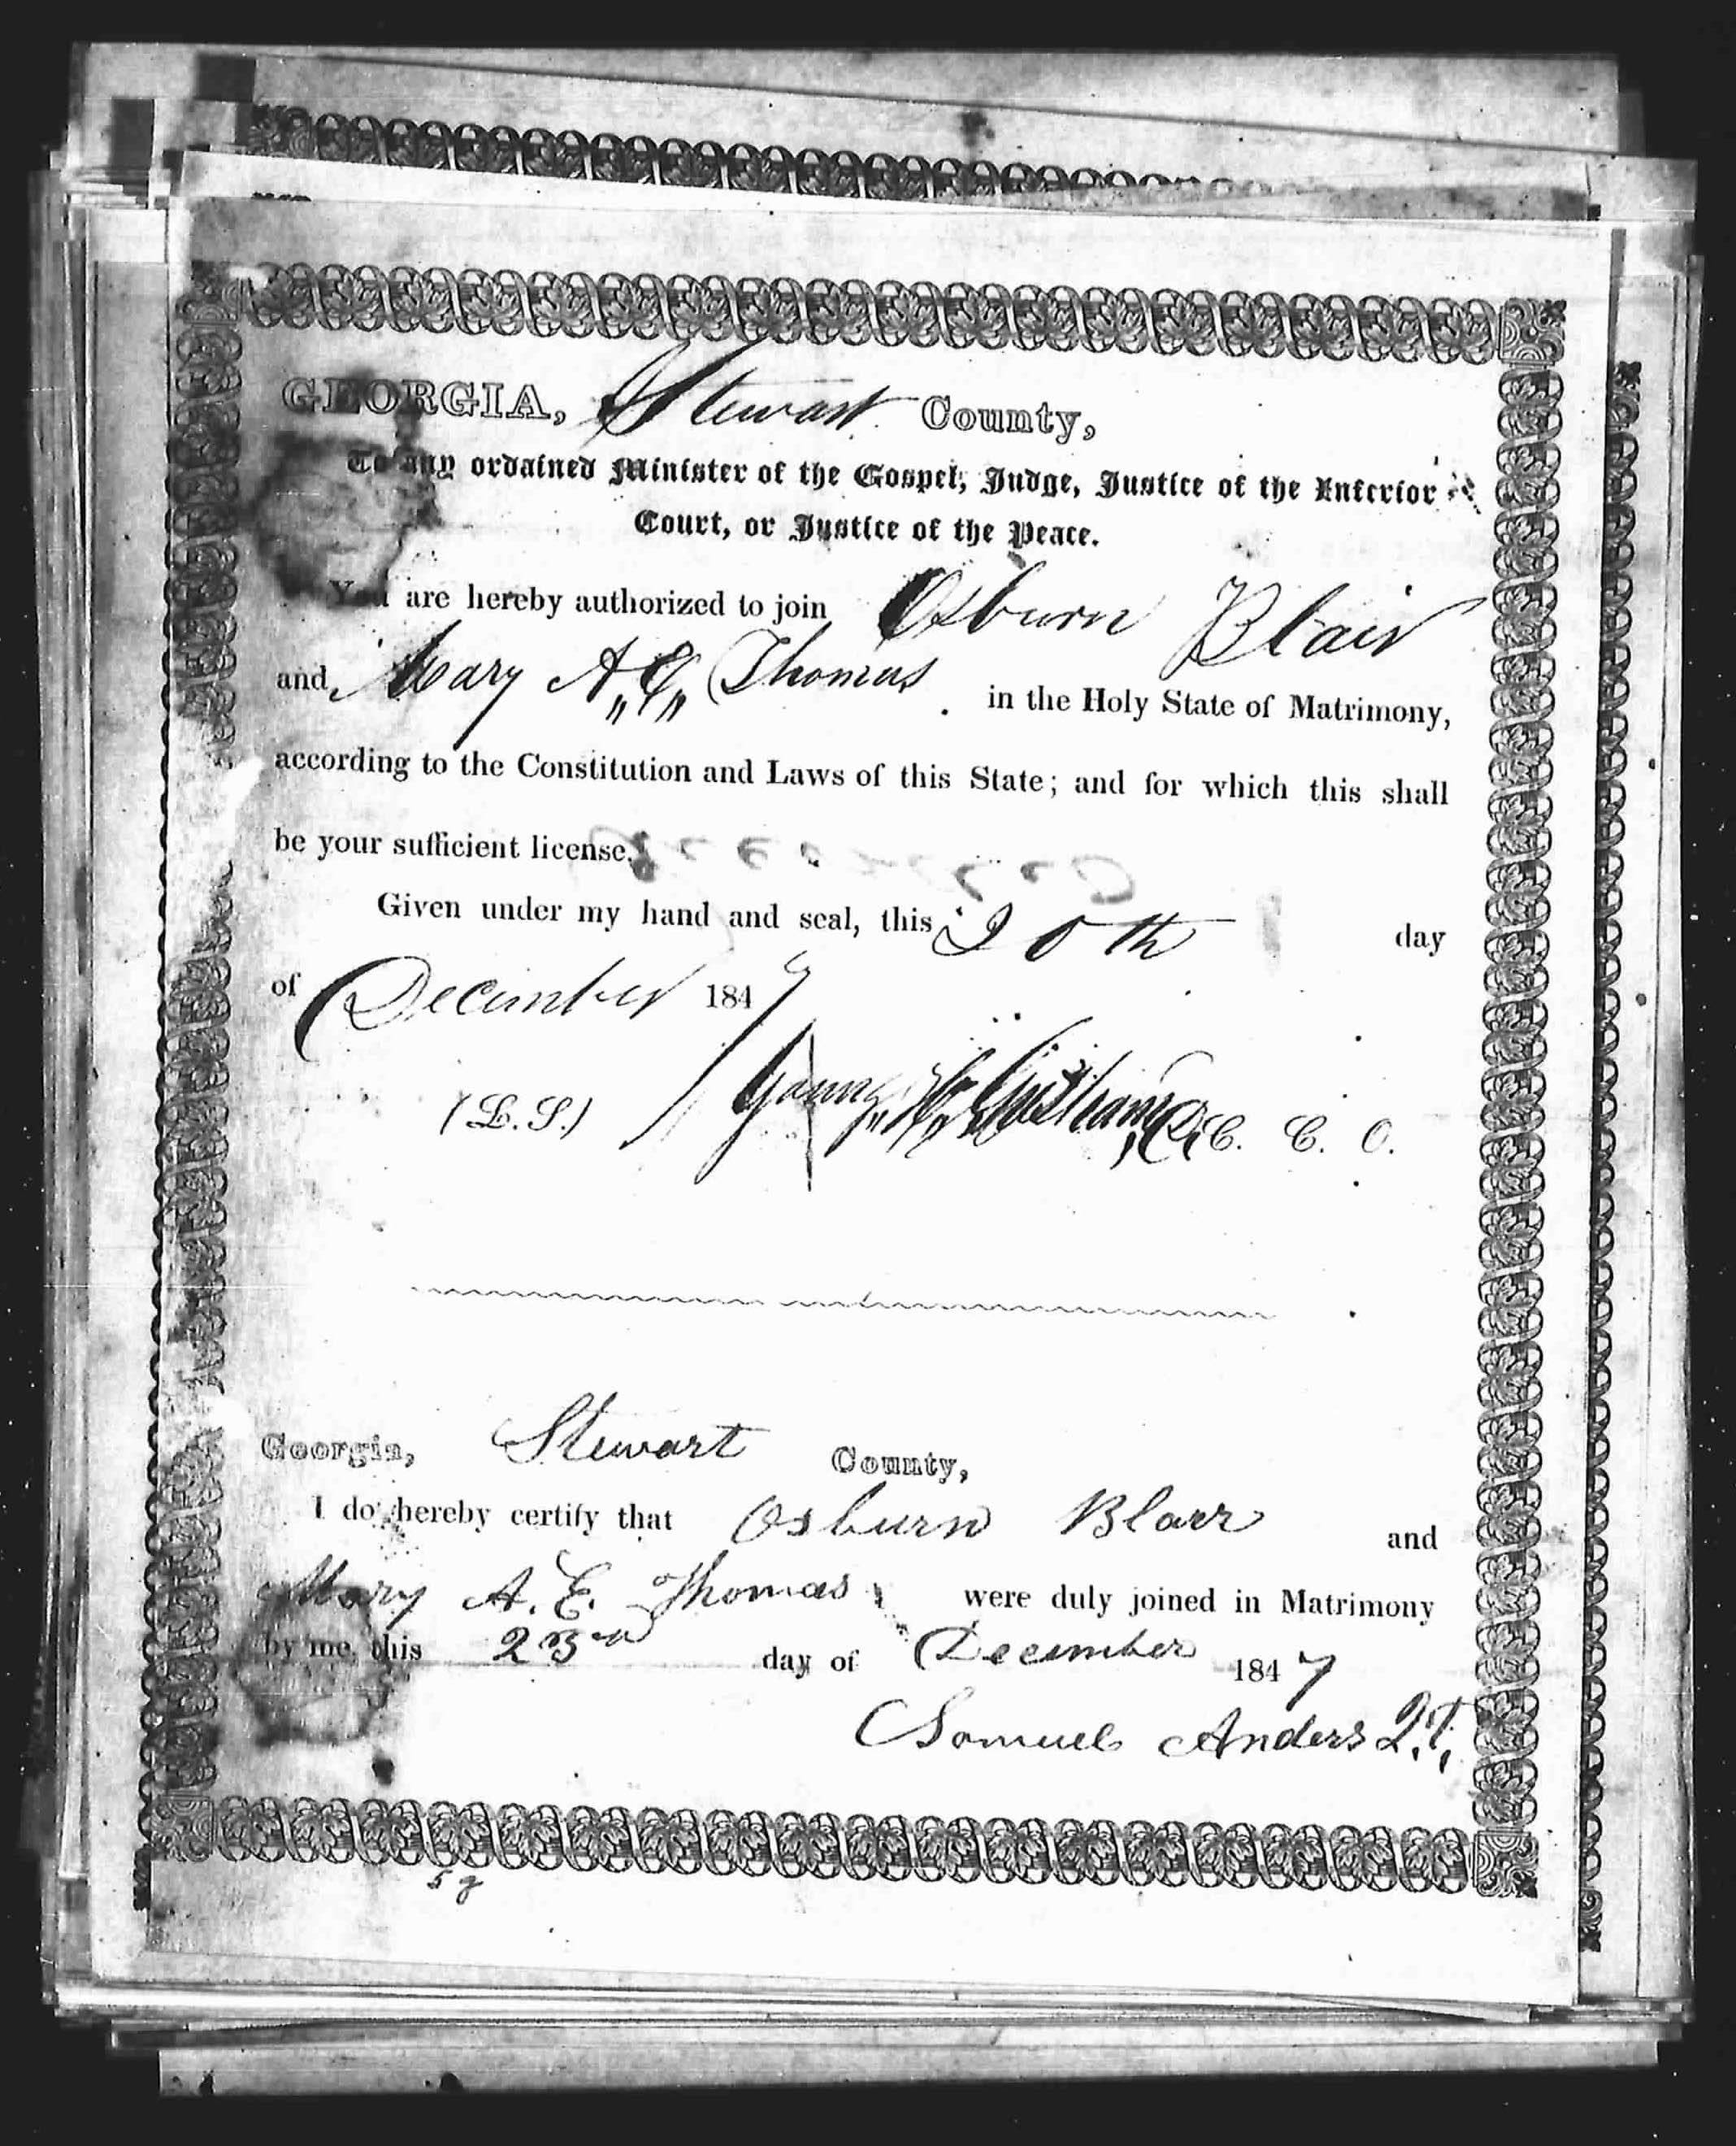 GEORGIA, Stewart County,
To any ordained Minister of the Gospel, Judge, Justice of the Inferior
Court, or Justice of the Peace.
You are hereby authorized to join Osburn Blair
and Mary A. E. Thomas in the Holy State of Matrimony,
according to the Constitution and Laws of this State; and for which this shall
be your sufficient license.
Given under my hand and seal, this 20th day
of December 1847
(L.S.) C. C. O.
Georgia, Stewart County,
I do hereby certify that Osburn Blair and
Mary A. E. Thomas were duly joined in Matrimony
by me, this 23rd day of December 1847
Samuel Anders